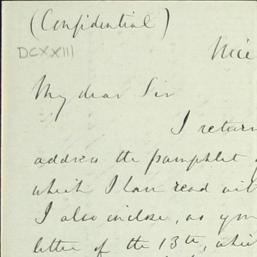 (Confidential)
DCXXIII
Nice
My dear Sir
I return
address the pamphlet
which I have read wit
I also inclose, as you
letter of the 13th, whic